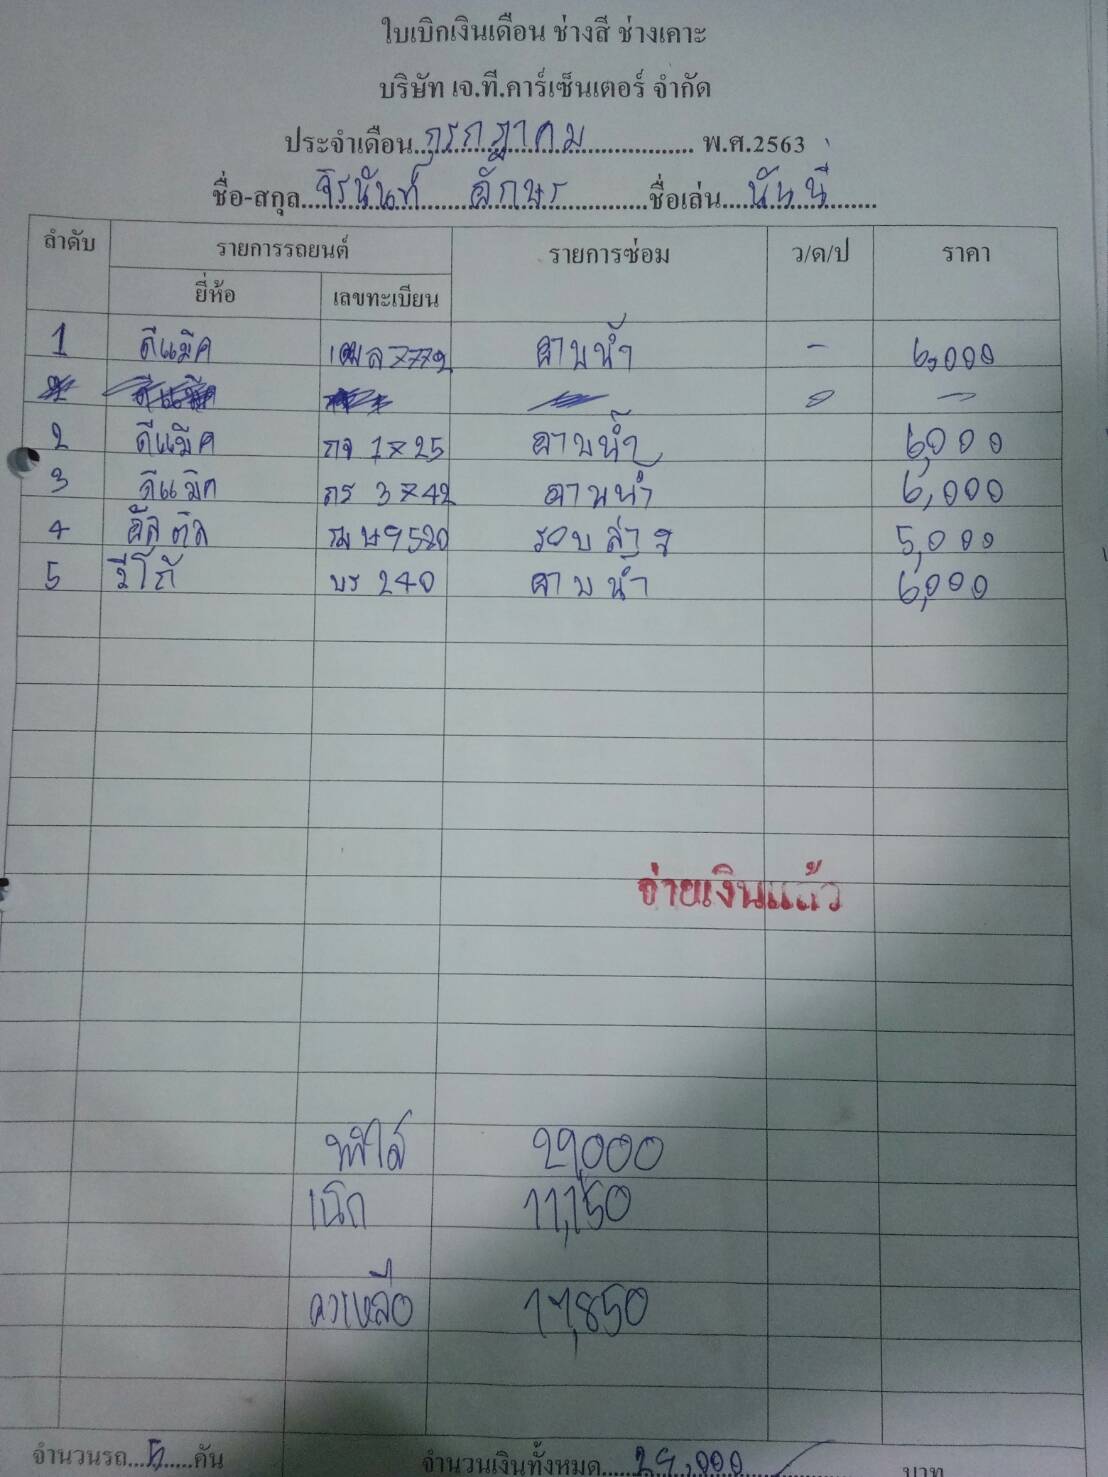 ใบเบิกเงินเดือน ช่างสี ช่างเคาะ
บริษัท เจ.ที.คาร์เซ็นเตอร์ จำกัด
ประจำเดือน...กรกฎาคม... พ.ศ.2563
ชื่อ-สกุล...จิรนันท์ อักษร...ชื่อเล่น...
ลำดับ รายการรถยนต์ รายการซ่อม ว/ด/ป ราคา
ยี่ห้อ เลขทะเบียน
1 ดีแม็ค 7772 อาบน้ำ - 6,000
2 ดีแม็ค กจ 1725 อาบน้ำ 6,000
3 ดีแม็ค กร 3742 อาบน้ำ 6,000
4 9520 รอบล่าง 5,000
5 วีโก้ บร 240 อาบน้ำ 6,000
จ่ายเงินแล้ว
29,000
เบิก 11,150
คงเหลือ 17,850
จำนวนรถ...5...คัน จำนวนเงินทั้งหมด...29,000...บาท